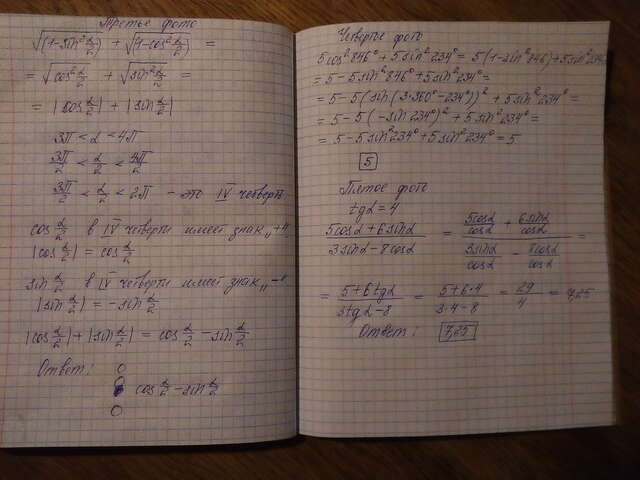 Третье фото
√(1-sin²α/2) + √(1-cos²α/2) =
= √cos²α/2 + √sin²α/2 =
= |cos α/2| + |sin α/2|
3π < α < 4π
3π/2 < α/2 < 4π/2
3π/2 < α/2 < 2π - это IV четверть
cos α/2 в IV четверти имеет знак „+"
|cos α/2| = cos α/2
sin α/2 в IV четверти имеет знак „-"
|sin α/2| = -sin α/2
|cos α/2| + |sin α/2| = cos α/2 - sin α/2
Ответ:
cos α/2 - sin α/2
Четвертое фото
5cos²846° + 5sin²234° = 5(1-sin²846) + 5sin²234°
= 5 - 5sin²846° + 5sin²234° =
= 5 - 5(sin(3·360° - 234°))² + 5sin²234° =
= 5 - 5(-sin 234°)² + 5sin²234° =
= 5 - 5sin²234° + 5sin²234° = 5
5
Пятое фото
tgα = 4
(5cosα + 6sinα)/(3sinα - 8cosα) = (5cosα/cosα + 6sinα/cosα)/(3sinα/cosα - 8cosα/cosα) =
= (5 + 6tgα)/(3tgα - 8) = (5 + 6·4)/(3·4 - 8) = 29/4 = 7,25
Ответ: 7,25